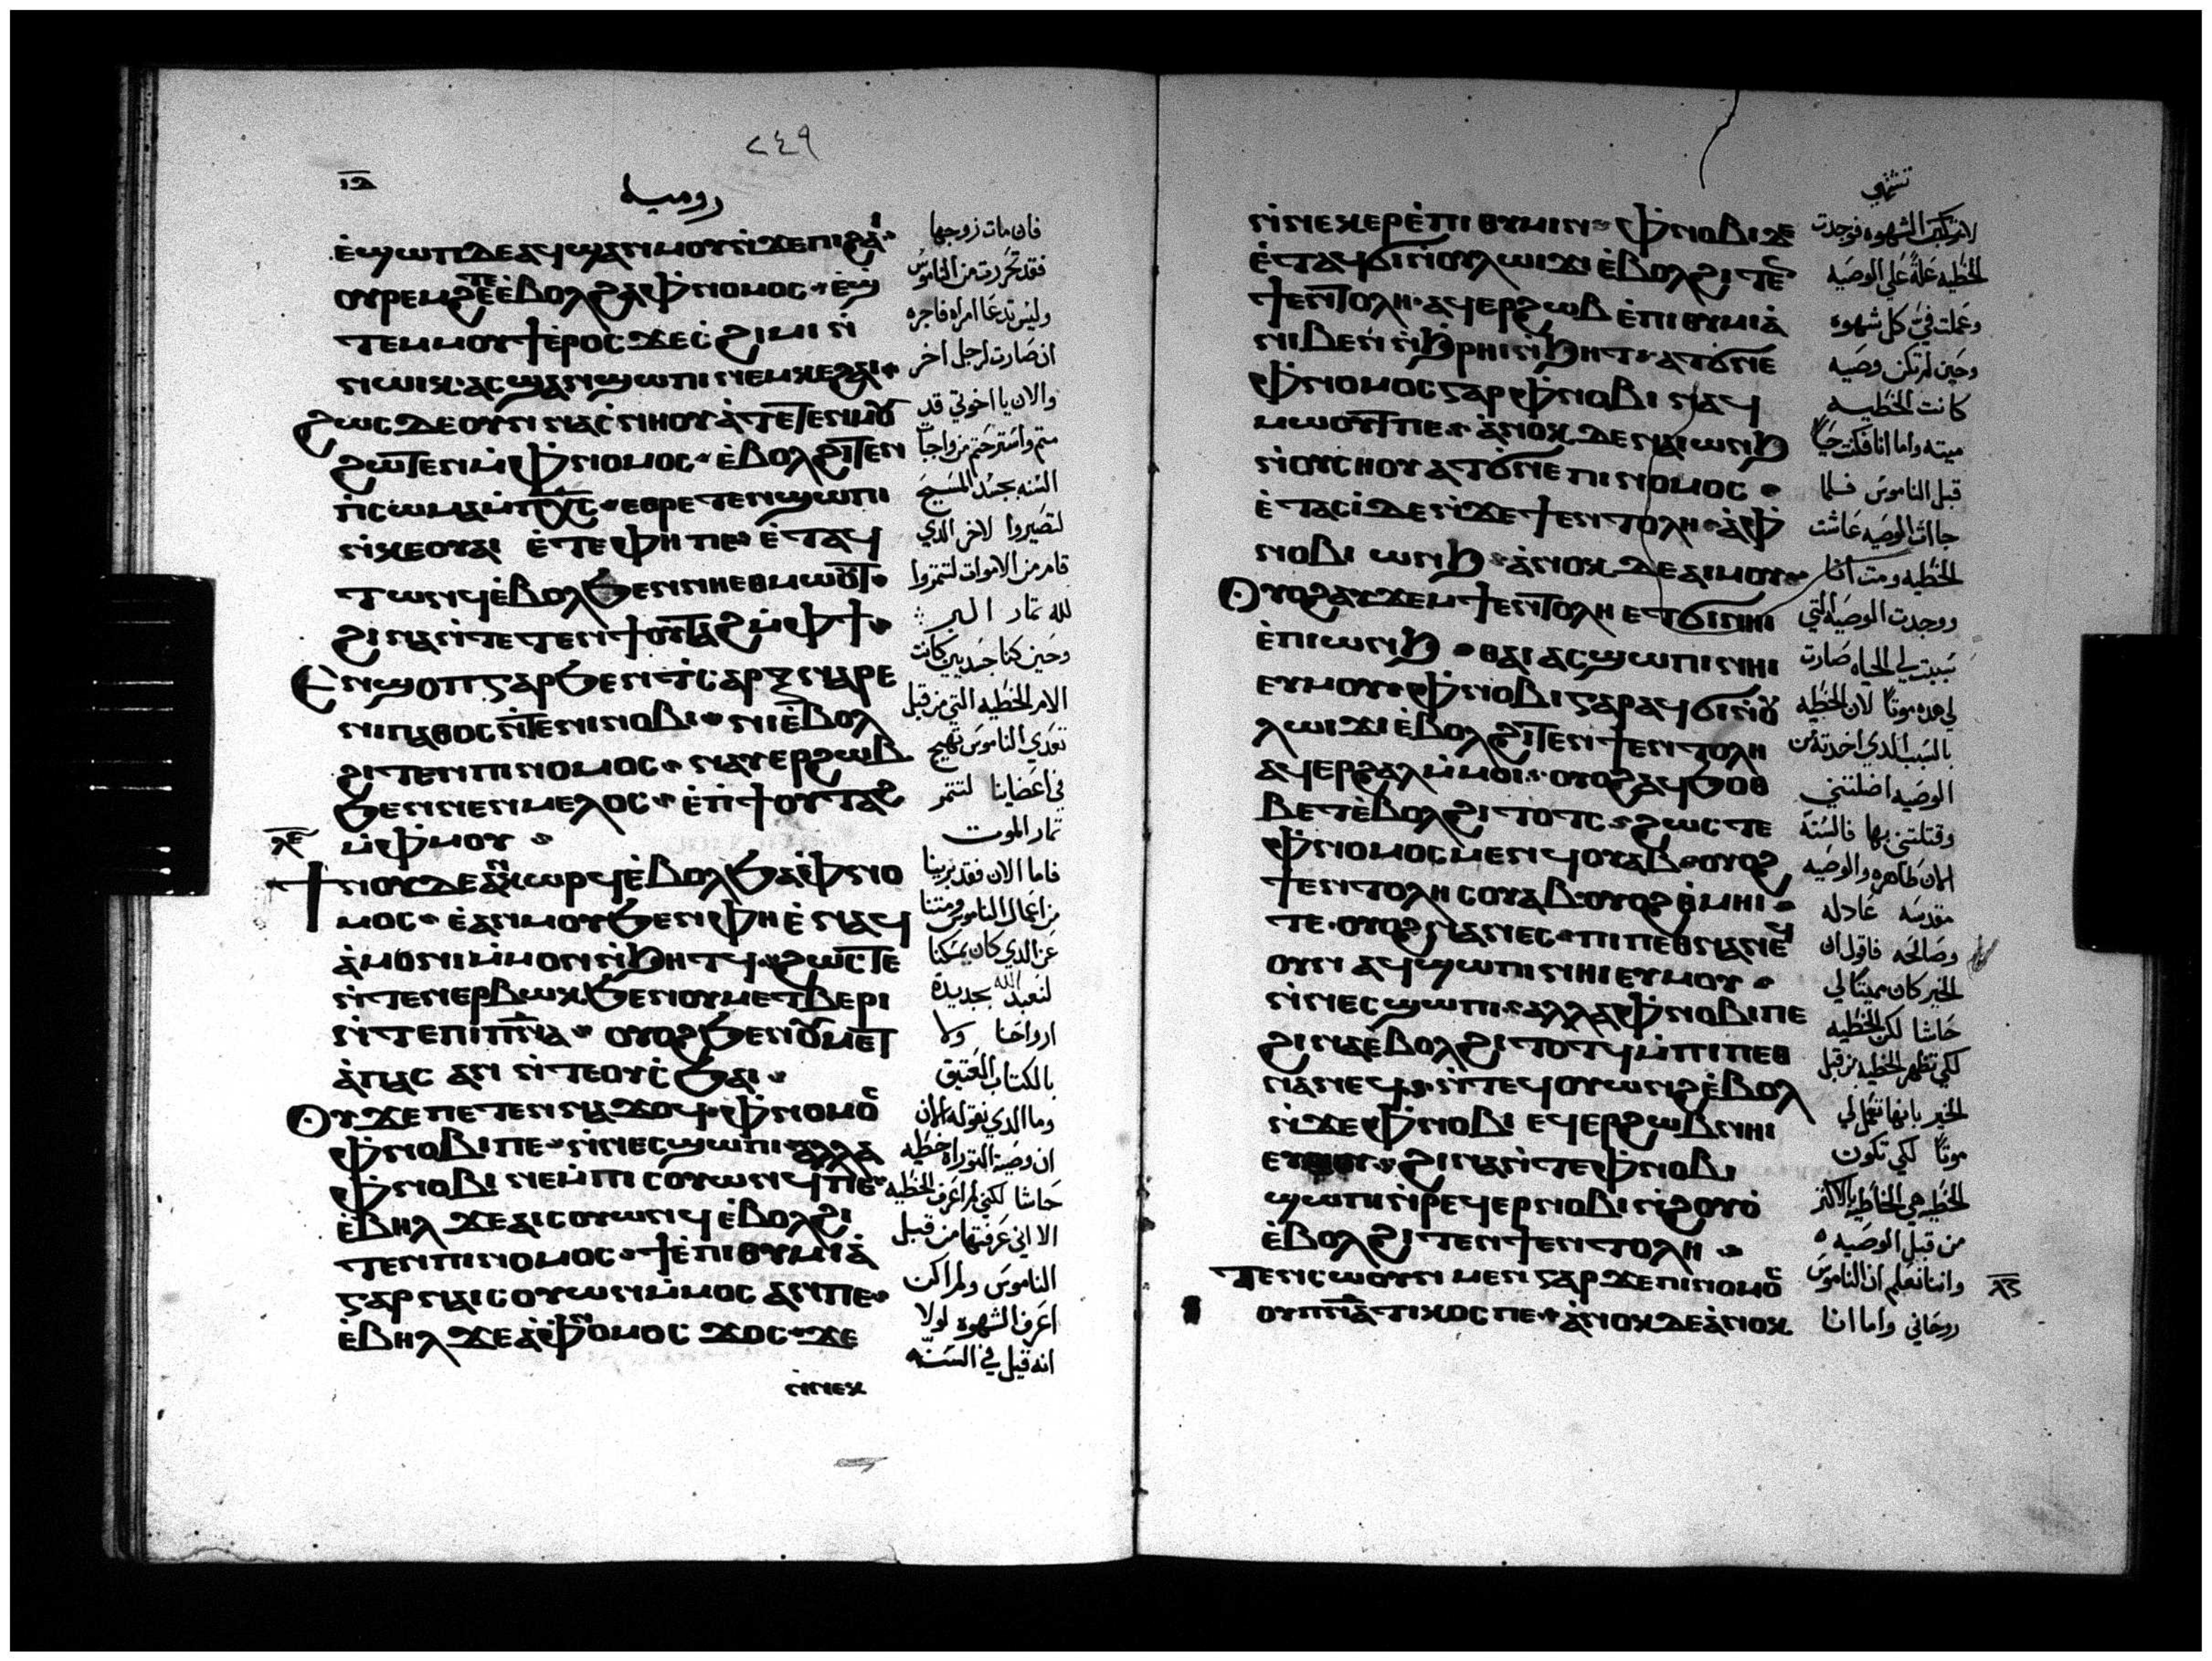 ٢٤٩
ⲓ̅ⲃ̅
روميه
ⲉ̀ϣⲱⲡ ⲇⲉ ⲁϥϣⲁⲛⲙⲟⲩ ⲛ̀ϫⲉ ⲡⲓϩⲁⲓ
ⲟⲩⲣⲉⲙϩⲉ ⲧⲉ ⲉ̀ⲃⲟⲗ ϩⲁ ⲫ̀ⲛⲟⲙⲟⲥ ⲉ̀ϣ
ⲧⲉⲙⲙⲟⲩϯ ⲉ̀ⲣⲟⲥ ϫⲉ ⲥ̀ϩⲓⲙⲓ ⲛ̀
ⲛⲱⲓⲕ ⲁⲥϣⲁⲛϣⲱⲡⲓ ⲛⲉⲙ ⲕⲉϩⲁⲓ
ϩⲱⲥⲇⲉ ⲟⲩⲛ ⲛⲁⲥ̀ⲛⲏⲟⲩ ⲁ̀ⲧⲉⲧⲉⲛⲙⲟⲩ
ϩⲱⲧⲉⲛ ⲙ̀ⲫ̀ⲛⲟⲙⲟⲥ ⲉ̀ⲃⲟⲗ ϩⲓⲧⲉⲛ
ⲡⲓⲥⲱⲙⲁ ⲙ̀ⲡⲭ̅ⲥ̅ ⲉⲑⲣⲉⲧⲉⲛϣⲱⲡⲓ
ⲛ̀ⲕⲉⲟⲩⲁⲓ ⲉ̀ⲧⲉ ⲫⲏ ⲡⲉ ⲉ̀ⲧⲁϥ
ⲧⲱⲛϥ ⲉ̀ⲃⲟⲗ ϧⲉⲛ ⲛⲏⲉⲑⲙⲱⲟⲩⲧ
ϩⲓⲛⲁ ⲛ̀ⲧⲉⲧⲉⲛϯⲟⲩⲧⲁϩ ⲙ̀ⲫϯ
Ⲉⲛϣⲟⲡ ⲅⲁⲣ ϧⲉⲛ ⲧ̀ⲥⲁⲣⲝ ⲛⲁⲣⲉ
ⲛⲓⲡⲁⲑⲟⲥ ⲛ̀ⲧⲉ ⲛⲓⲛⲟⲃⲓ ⲛⲓⲉ̀ⲃⲟⲗ
ϩⲓⲧⲉⲛ ⲡⲓⲛⲟⲙⲟⲥ ⲛⲁⲩⲉⲣϩⲱⲃ
ϧⲉⲛ ⲛⲉⲛⲙⲉⲗⲟⲥ ⲉ̀ⲡ̀ϯⲟⲩⲧⲁϩ
ⲗ̅ⲉ̅
ⲙ̀ⲫ̀ⲙⲟⲩ
Ϯⲛⲟⲩ ⲇⲉ ⲁⲛⲕⲱⲣϥ ⲉ̀ⲃⲟⲗ ϧⲁ ⲫ̀ⲛⲟ
ⲙⲟⲥ ⲉ̀ⲁⲛⲙⲟⲩ ϧⲉⲛ ⲫⲏ ⲉ̀ⲛⲁϥ
ⲁ̀ⲙⲟⲛⲓ ⲙ̀ⲙⲟⲛ ⲛ̀ϧⲏⲧϥ ϩⲱⲥⲧⲉ
ⲛ̀ⲧⲉⲛⲉⲣⲃⲱⲕ ϧⲉⲛ ⲟⲩⲙⲉⲧⲃⲉⲣⲓ
ⲛ̀ⲧⲉ ⲡⲓⲡ̅ⲛ̅ⲁ̅ ⲟⲩⲟϩ ϧⲉⲛ ⲟⲩⲙⲉⲧ
ⲁ̀ⲡⲁⲥ ⲁⲛ ⲛ̀ⲧⲉ ⲟⲩⲥ̀ϧⲁⲓ
Ⲟⲩ ϫⲉ ⲡⲉⲧⲉⲛⲛⲁϫⲟϥ ⲫ̀ⲛⲟⲙⲟⲥ
ⲫ̀ⲛⲟⲃⲓ ⲡⲉ ⲛ̀ⲛⲉⲥϣⲱⲡⲓ ⲁⲗⲗⲁ
ⲫ̀ⲛⲟⲃⲓ ⲛⲉ ⲙ̀ⲡⲓⲥⲟⲩⲱⲛϥ ⲡⲉ
ⲉ̀ⲃⲏⲗ ϫⲉ ⲁⲓⲥⲟⲩⲱⲛϥ ⲉ̀ⲃⲟⲗ ϩⲓ
ⲧⲉⲛ ⲡⲓⲛⲟⲙⲟⲥ ϯⲉ̀ⲡⲓⲑⲩⲙⲓⲁ̀
ⲅⲁⲣ ⲛⲁⲓⲥⲟⲩⲱⲛ ⲙ̀ⲙⲟⲥ ⲁⲛ ⲡⲉ
ⲉ̀ⲃⲏⲗ ϫⲉ ⲁ̀ ⲫ̀ⲛⲟⲙⲟⲥ ϫⲟⲥ ϫⲉ
ⲛ̀ⲛⲉⲕ
فان مات زوجها
فقد تحررت من الناموس
وليس تدعا امراه فاجره
ان صارت لرجل اخر
والان يا اخوتي قد
متم واسترحتم من واجبات
السنه بجسد المسيح
لتصيروا لاخر الدي
قام من الاموات لتتمروا
لله تمار البر
وحين كنا جسديين كانت
الام الخطيه التي من قبل
تعدي الناموس تهيج
في اعضاينا لنتمر
تمار الموت
فاما الان فقد برينا
من اعمال الناموس ومتنا
عن الدي كان يمسكنا
لنعبد الله بجديدة
ارواحنا ولا
بالكتاب العتيق
وما الدي نقوله الان
ان وصية التوراه خطيه
حاشا لكني لم اعرف الخطيه
الا اني عرفتها من قبل
الناموس ولم اكن
اعرف الشهوه لولا
انه قيل في السنه
ⲛ̀ⲛⲉⲕⲉⲣⲉ̀ⲡⲓⲑⲩⲙⲓⲛ ⲫ̀ⲛⲟⲃⲓ ⲇⲉ
ⲉ̀ⲧⲁϥϭⲓ ⲛ̀ⲟⲩⲗⲱⲓϫⲓ ⲉ̀ⲃⲟⲗ ϩⲓⲧⲉⲛ
ϯⲉⲛⲧⲟⲗⲏ ⲁϥⲉⲣϩⲱⲃ ⲉ̀ⲡⲓⲑⲩⲙⲓⲁ̀
ⲛⲓⲃⲉⲛ ⲛ̀ϧ̀ⲣⲏⲓ ⲛ̀ϧⲏⲧ ⲁⲧϭⲛⲉ
ⲫ̀ⲛⲟⲙⲟⲥ ⲅⲁⲣ ⲫ̀ⲛⲟⲃⲓ ⲛⲁϥ
ⲙⲱⲟⲩⲧ ⲡⲉ ⲁ̀ⲛⲟⲕ ⲇⲉ ⲛⲁⲓⲱⲛϧ
ⲛ̀ⲟⲩⲥⲏⲟⲩ ⲁⲧϭⲛⲉ ⲡⲓⲛⲟⲙⲟⲥ
ⲉ̀ⲧⲁⲥⲓ̀ ⲇⲉ ⲛ̀ϫⲉ ϯⲉⲛⲧⲟⲗⲏ ⲁ̀ ⲫ̀
ⲛⲟⲃⲓ ⲱⲛϧ ⲁ̀ⲛⲟⲕ ⲇⲉ ⲁⲓⲙⲟⲩ
Ⲟⲩⲟϩ ⲁⲩϫⲉⲙ ϯⲉⲛⲧⲟⲗⲏ ⲉⲧϭⲓ ⲛⲏⲓ
ⲉ̀ⲡⲓⲱⲛϧ ⲑⲁⲓ ⲁⲥϣⲱⲡⲓ ⲛⲏⲓ
ⲉⲩⲙⲟⲩ ⲫ̀ⲛⲟⲃⲓ ⲅⲁⲣ ⲁϥϭⲓ ⲛ̀ⲟⲩ
ⲗⲱⲓϫⲓ ⲉ̀ⲃⲟⲗ ϩⲓⲧⲉⲛ ϯⲉⲛⲧⲟⲗⲏ
ⲁϥⲉⲣϩⲁⲗ ⲙ̀ⲙⲟⲓ ⲟⲩⲟϩ ⲁϥϧⲟⲑ
ⲃⲉⲧ ⲉ̀ⲃⲟⲗ ϩⲓⲧⲟⲧⲥ ϩⲱⲥⲧⲉ
ⲫ̀ⲛⲟⲙⲟⲥ ⲙⲉⲛ ϥⲟⲩⲁⲃ ⲟⲩⲟϩ
ϯⲉⲛⲧⲟⲗⲏ ⲥⲟⲩⲁⲃ ⲟⲩⲟϩ ⲑ̀ⲙⲏⲓ
ⲧⲉ ⲟⲩⲟϩ ⲛⲁⲛⲉⲥ ⲡⲓⲡⲉⲑⲛⲁⲛⲉϥ
ⲟⲩⲛ ⲁϥϣⲱⲡⲓ ⲛⲏⲓ ⲉⲩⲙⲟⲩ
ⲛ̀ⲛⲉⲥϣⲱⲡⲓ ⲁⲗⲗⲁ ⲫ̀ⲛⲟⲃⲓ ⲡⲉ
ϩⲓⲛⲁ ⲉ̀ⲃⲟⲗ ϩⲓⲧⲟⲧϥ ⲙ̀ⲡⲓⲡⲉⲑ
ⲛⲁⲛⲉϥ ⲛ̀ⲧⲉϥⲟⲩⲱⲛϩ ⲉ̀ⲃⲟⲗ
ⲛ̀ϫⲉ ⲫ̀ⲛⲟⲃⲓ ⲉϥⲉⲣϩⲱⲃ ⲛⲏⲓ
ⲉⲩⲙⲟⲩ ϩⲓⲛⲁ ⲛ̀ⲧⲉ ⲫ̀ⲛⲟⲃⲓ
ϣⲱⲡⲓ ⲛ̀ⲣⲉϥⲉⲣⲛⲟⲃⲓ ⲛ̀ϩⲟⲩⲟ̀
ⲉ̀ⲃⲟⲗ ϩⲓⲧⲉⲛ ϯⲉⲛⲧⲟⲗⲏ
Ⲧⲉⲛⲥⲱⲟⲩⲛ ⲙⲉⲛ ⲅⲁⲣ ϫⲉ ⲡⲓⲛⲟⲙⲟⲥ
ⲟⲩⲡ̅ⲛ̅ⲁ̅ⲧⲓⲕⲟⲥ ⲡⲉ ⲁ̀ⲛⲟⲕ ⲇⲉ ⲁ̀ⲛⲟⲕ
تشتهي
لا تركب الشهوه فوجدت
الخطيه علة علي الوصيه
وعملت في كل شهوه
وحين لم تكن وصيه
كانت الخطيه
ميته واما انا فكنت حيا
قبل الناموس فلما
جاات الوصيه عاشت
الخطيه ومت انا
ووجدت الوصيه التي
سببت لي الحياه صارت
لي هده موتا لان الخطيه
بالسبب الدي اخدته من
الوصيه اضلتني
وقتلتني بها فالسنة
الان طاهره والوصيه
مقدسه عادله
وصالحه فاقول ان
الخير كان مميتا لي
حاشا لكن الخطيه
لكي تظهر الخطيه من قبل
الخير بانها تعمل لي
موتا لكي تكون
الخطيه هي الخاطيه بالاكتر
من قبل الوصيه
واننا نعلم ان الناموس
ⲗ̅ⲋ̅
روحاني واما انا